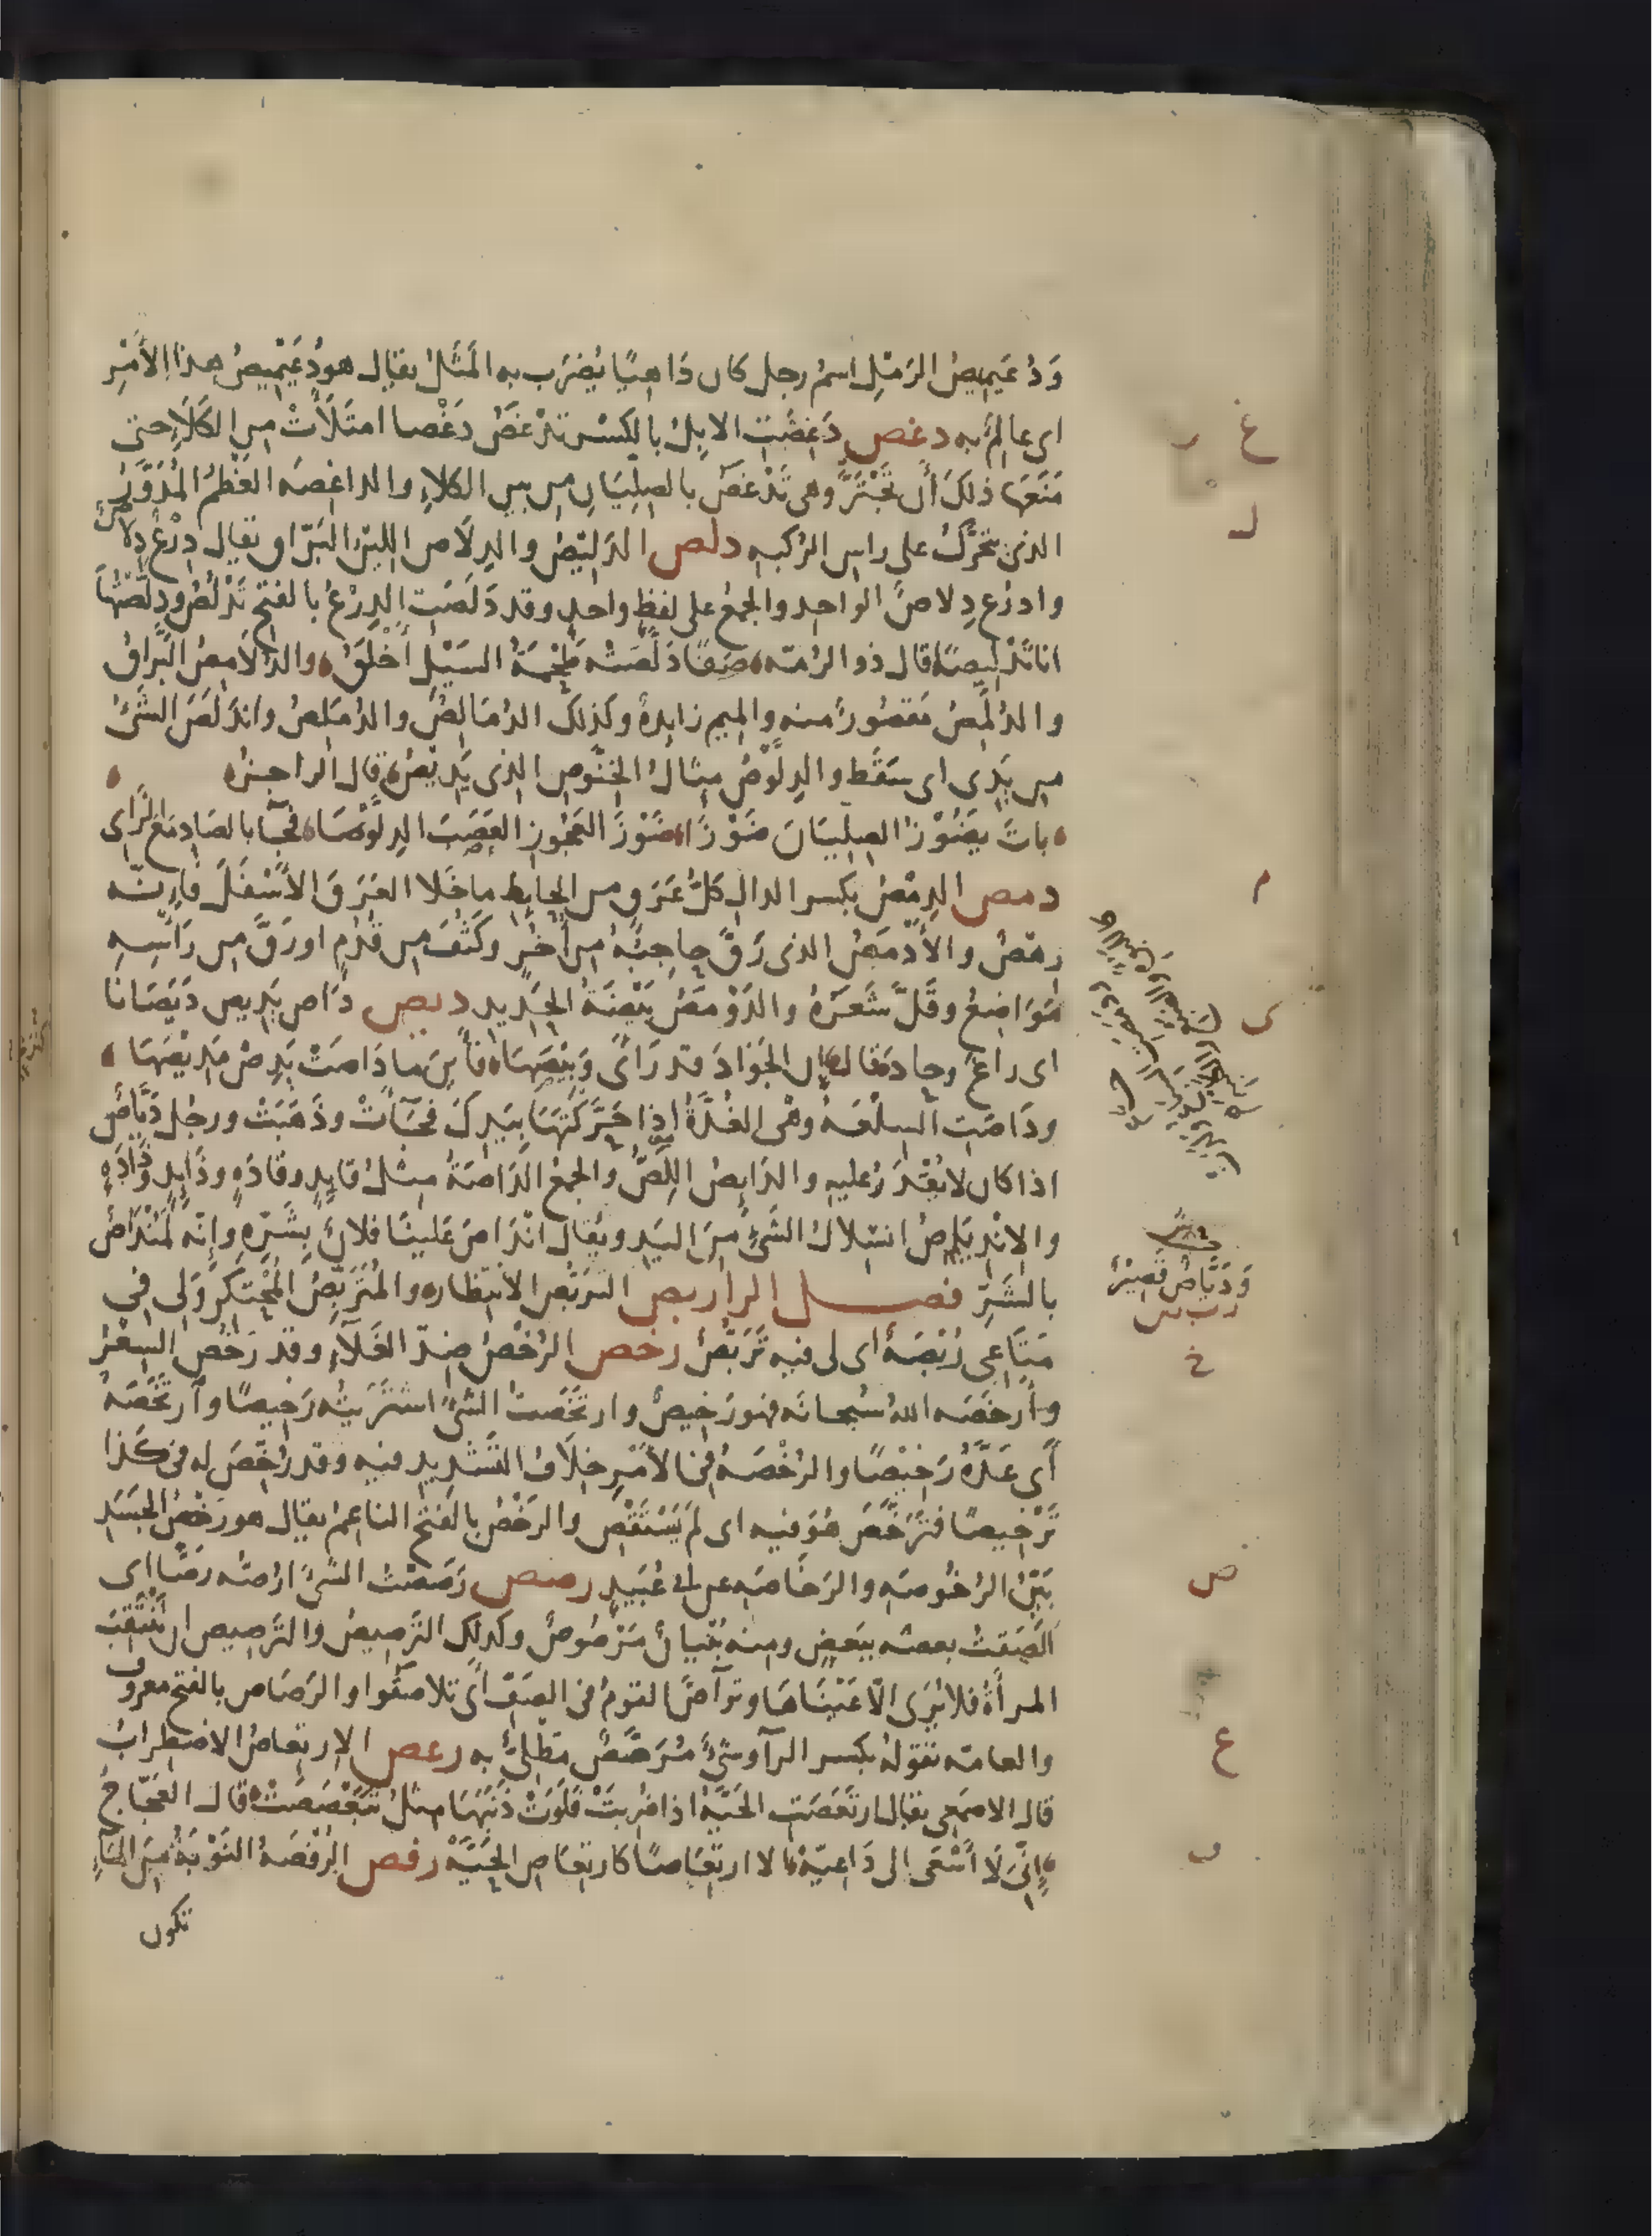 وَدُعَيْمِيصُ الرَمْلِ اسمُ رجل كان دَاهِيًا يُضرَب به المَثَلُ يقال هو دُعَيْمِيصُ هذا الأَمْرِ
اى عالِمٌ به دغص دَغِصَتِ الابِلُ بالكَسْر تَدْغَصُ دَغَصا امتَلَأَتْ من الكَلَإِ حتى
مَنَعَهَا ذلكَ أَن تَجْتَرَّ وهى تَدْغَصُ بالصِلِيَانِ من بين الكلاءِ والداغصَه العَظْمُ المُدَوَّرُ
الذى يتحَرّكُ على راس الرُكبه دلص الدَلِيْصُ والدِلَاص الليّن البَرّاق يقال دِرْعٌ دِلاصٌ
وادرُع دِلاصٌ الواحد والجمعُ على لفظٍ واحدٍ وقد دَلَصَتِ الدِرْعُ بالفتح تَدْلُصُ ودلّصْتُهَا
انا تَدْلِيصًا قال ذو الرُمّه صَفًا دَلّصَتْه طَحْمَةُ السَيْلِ أَخْلَقُ والدُلَامِصُ البَرّاقُ
والدُلَمِصُ مَقصُورٌ منه والميم زايدةٌ وكذلكَ الدُمَالِصُ والدُمَلِصُ واندَلَصَ الشَىْءُ
من يَدِى اى سَقَط والدِلَّوْصُ مِثالُ الخِنَّوْصِ الذى يَدِيْصُ قال الراجزُ
باتَ يَضُوْزُ الصِلِّيَانَ ضَوْزًا ضَوْزَ العَجُوزِ العَصَبَ الدِلَّوْصَا فجَآ بالصَاد مَعَ الزَاى
دمص الدِمْصُ بكسر الدال كلُّ عَرَقٍ من الحايط ما خَلا العَرَقَ الأَسْفَلَ فإِنّه
رهْصٌ والأَدْمَصُ الذى رَقَّ حاجِبُهُ من أُخُرٍ وكَثُفَ من قُدُمٍ او رَقَّ من رَاسِهِ
مَوَاضِعُ وقَلَّ شَعَرُهُ والدَوْمَصُ بَيْضَةُ الحَدِيد ديص دَاص يَدِيص دَيَصَانا
اى راغَ وحادَ قال إن الجَوَادَ قد رَأَى وَبِيْصَهَا فأَينَ ما دَاصَتْ يَدِصْ مَدِيْصَهَا
ودَاصَتِ السِلْعَه وهْى الغُدَّةُ إذا حَرَّكْتَهَا بيَدِكَ فجَآءَتْ وذَهَبَتْ ورجُل دَيَّاصٌ
اذا كان لا يُقْدَرُ عليه والدَايِصُ اللِصُّ والجمعُ الدَاصَةُ مِثلُ قايدٍ وقادَةٍ وذَايدٍ وذَادَةٍ
والانْدِيَاصُ انسِلالُ الشَىْءِ مِنَ اليَدِ ويُقال انْدَاصَ عَلينَا فلانٌ بِشَرِّهِ وإِنّه لَمُنْدَاصٌ
بالشَرِّ فصل الراء ربص التَرَبّصُ الانتظار والمُتَرَبِّصُ المُحْتَكِرُ وَلِى فى
مَتَاعِى رُبْصَةٌ اى لى فيه تَرَبُّصٌ رخص الرُخْصُ ضِدّ الغَلَآءِ وقد رَخُصَ السِعْرُ
وأَرْخَصَه اللهُ سُبحانَه فهو رَخِيصٌ وارتخَصتُ الشَىْءَ اشتَرَيتُه رَخِيصًا وارتَخَصَهُ
أَى عَدَّهُ رَخِيْصًا والرُخْصَهُ فى الأَمْرِ خِلَافُ التَشْدِيدِ فيه وقد رُخِّصَ له فى كَذا
تَرْخِيصًا فتَرَخَّصَ هُوَ فيه اى لم يَسْتَقْصِ والرَخْصُ بالفتح الناعِمُ يقال هو رَخْصُ الجَسَدِ
بَيّنُ الرُخُوصَه والرَخَاصَه عن ابى عُبَيدٍ رصص رَصَصْتُ الشَىْءَ ارُصّه رصًّا اى
الصَقتُ بعضَه ببَعضٍ ومنه بُنْيانٌ مَرْصُوصٌ وكذلك التَرصِيصُ والتَرصِيص ان تَنْتَقِبَ
المرأَةُ فلا يُرَى الّا عَيْنَاهَا وترَآصَّ القومُ فى الصَفّ أى تلاصَقُوا والرَصَاص بالفتح معروف
والعامّه تقولهُ بكسر الرآءِ وشىْءٌ مُرَصَّصٌ مَطْلِىٌّ به رعص الإرتِعاصُ الاضطرابُ
قال الاصمَعِى يقال ارتَعَصَتِ الحَيَّةُ اذا ضُرِبَتْ فلَوَتْ ذَنَبَهَا مِثلُ تَبَعْصَصَتْ قال العَجّاجُ
إِنِّى لَا أَسْعَى الى دَاعِيّهْ الا ارتِعَاصًا كارتِعَاصِ الحَيَّهْ رفص الرُفْصَهُ النَوْبَةُ مِنَ المَآءِ
تكون
غ ر
ل
م
ى
وَدَيَّاصٌ قَصِيْرٌ
ر ب ص
خ
ص
ع
ف